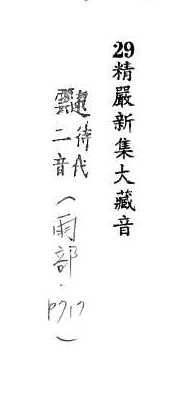 29精嚴新集大藏音
靆待代
二音（雨部．p717）